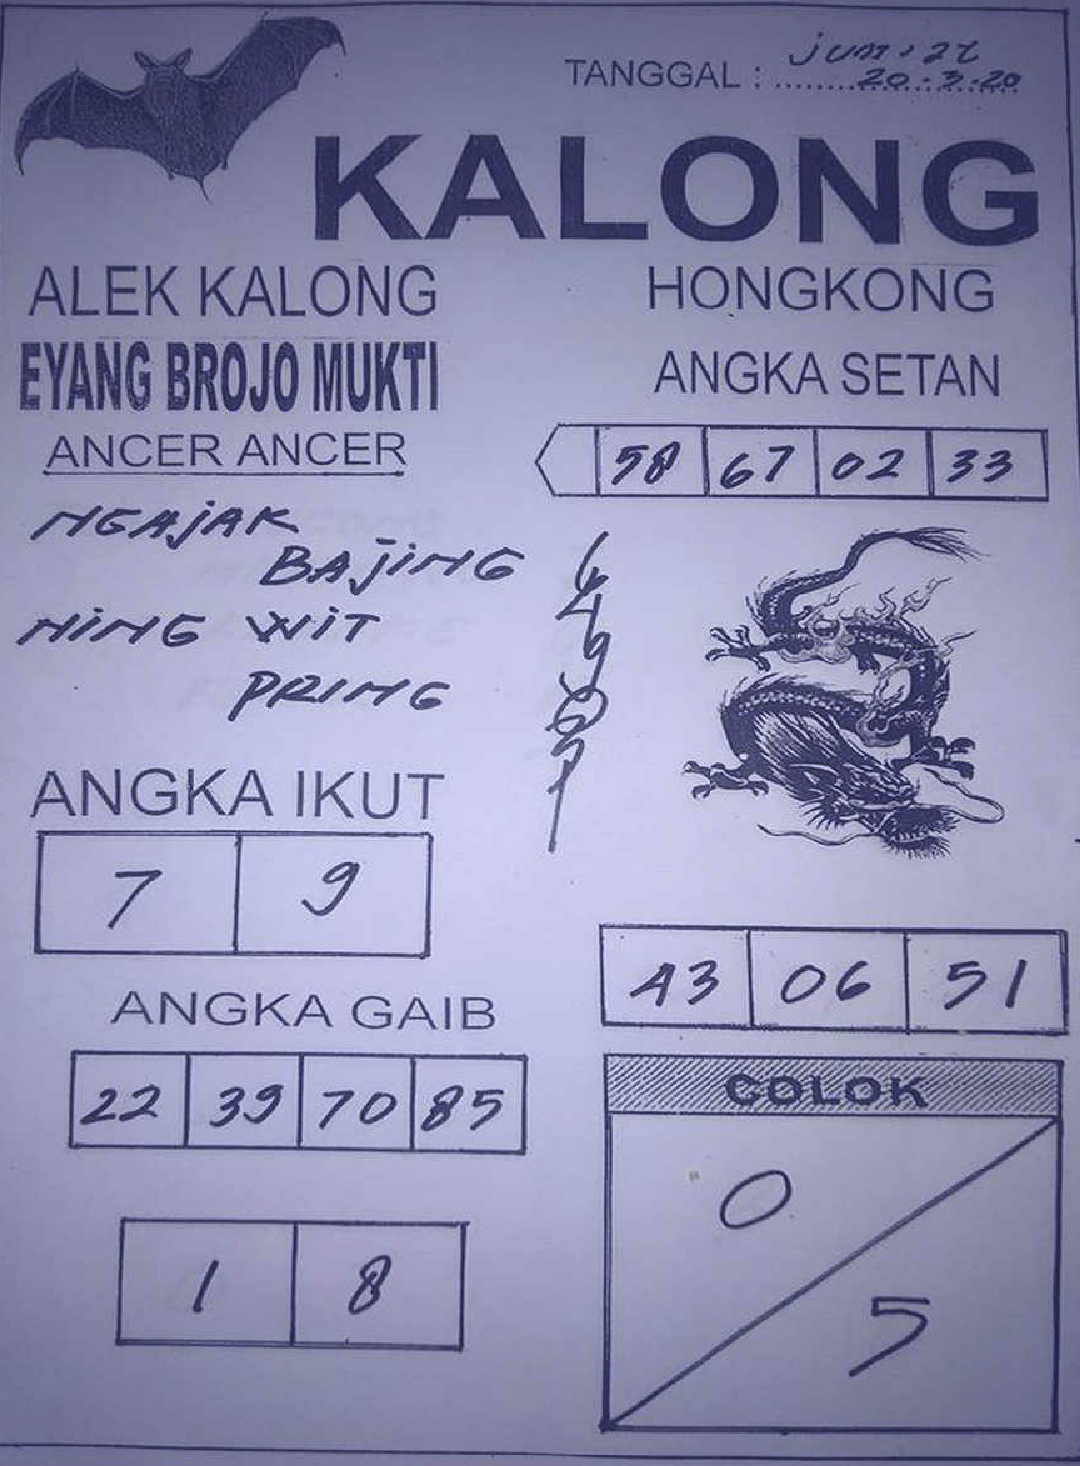 TANGGAL : jum,at
20-3-20
KALONG
ALEK KALONG
EYANG BROJO MUKTI
ANCER ANCER
NGAjAK
BAjiNG
NiNG WiT
PRiNG
HONGKONG
ANGKA SETAN
58 67 02 33
6
4
9
ANGKA IKUT
7 9
ANGKA GAIB
22 39 70 85
1 8
43 06 51
COLOK
0
5